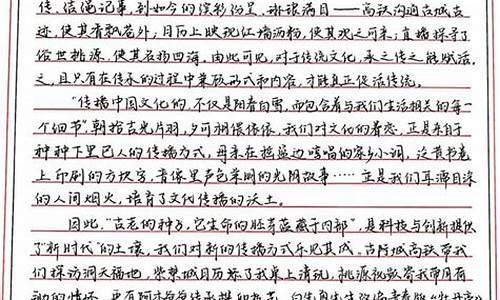 传、洁绳记事,到如今的缤彩纷呈、琳琅满目——高铁沟通古城古
迹,使其看飘名外,目历上映现红墙沥粉,使其观之可亲;直播探寻了
俗世桃源,使其名扬四海。由此可见,对于传统文化,承之传之能赋活
之,且只有在传承的过程中兼顾形式和内容,才能真正促活传统。
“传播中国文化的,不仅是阳春白雪,而包含着与我们生活相关的每一
个细节”朝拾吉光片羽,夕可相偎依偎,我们对文化的眷恋,正是来自于
种种下里巴人的传播方式,母亲在摇篮边哼唱的家乡小调,泛黄书卷
上印刷的方块字,音像里声色采明的光阴故事……正是我们耳濡目染
的人间烟火,培育了文化传播的沃土。
因此,“古老的种子,它生命的胚芽蕴藏于内部”,是科技与创新提供
了“新时代”的土壤,我们对新的传播方式乐见其成。古阵城高铁带我
们探访洞天福地,紫禁城日历添了我桌上清玩,桃源视频常我带回有